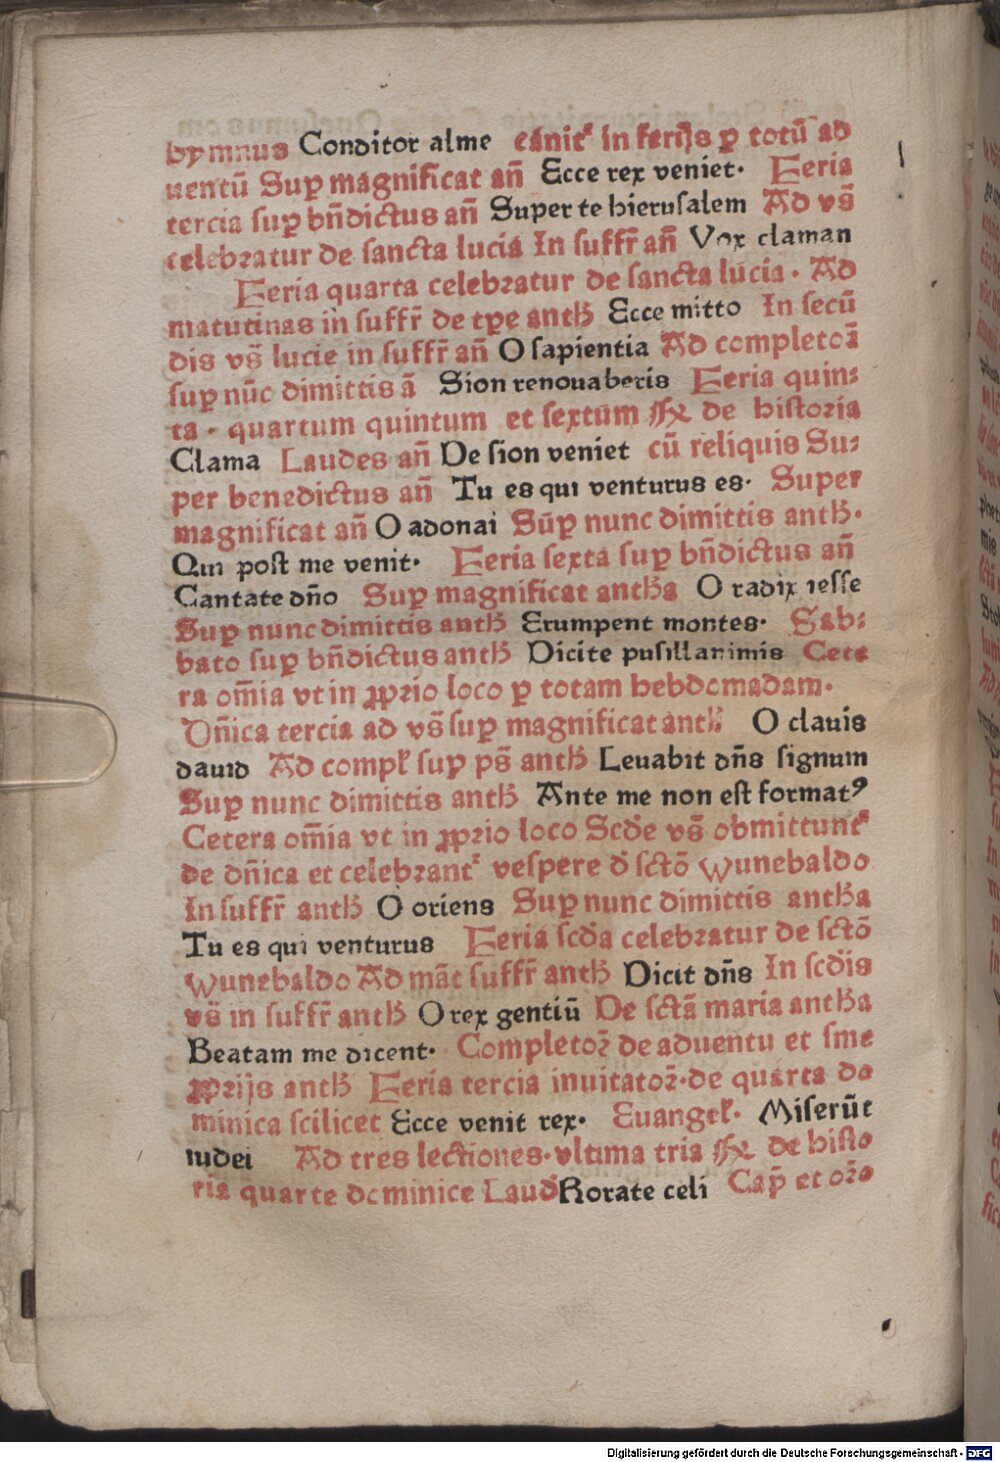 hymnus Conditor alme canit᷑ in ferijs ꝑ totū ad
uentū Suꝑ magnificat añ Ecce rex veniet. Feria
tercia suꝑ bñdictus añ Super te hierusalem Ad vs̃
celebratur de sancta lucia In suffr̃ añ Vox claman
Feria quarta celebratur de sancta lucia. Ad
matutinas in suffr̃ de tꝑe anth̃ Ecce mitto In secū
dis vs̃ lucie in suffr̃ añ O sapientia Ad completoꝝ̃
suꝑ nūc dimittis ā Sion renouaberis Feria quin⸗
ta. quartum quintum et sextum ℟ de historia
Clama Laudes añ De sion veniet cū reliquis Su⸗
per benedictus añ Tu es qui venturus es. Super
magnificat añ O adonai Sūꝑ nunc dimittis anth̃.
Qui post me venit. Feria sexta suꝑ bñdictus añ
Cantate dño Suꝑ magnificat anth̃a O radix iesse
Suꝑ nunc dimittis anth̃ Erumpent montes. Sab⸗
bato suꝑ bñdictus anth̃ Dicite pusillanimis Cete
ra om̃ia vt in ꝓprio loco ꝑ totam hebdomadam.
Dñica tercia ad vs̃ suꝑ magnificat anth̃ O clauis
dauid Ad compl̃ suꝑ ps̃ anth̃ Leuabit dñs signum
Suꝑ nunc dimittis anth̃ Ante me non est formatꝰ
Cetera om̃ia vt in ꝓprio loco Scd̃e vs̃ obmittunt᷑
de dñica et celebrant᷑ vespere d̃ sctō wunebaldo
In suffr̃ anth̃ O oriens Suꝑ nunc dimittis anth̃a
Tu es qui venturus Feria scd̃a celebratur de sctō
wunebaldo Ad māt suffr̃ anth̃ Dicit dñs In scd̃is
vs̃ in suffr̃ anth̃ O rex gentiū De sctā maria anth̃a
Beatam me dicent. Completoꝝ̃ de aduentu et sine
ꝓprijs anth̃ Feria tercia inuitatoꝝ̃. de quarta do
minica scilicet Ecce venit rex. Euangel̃. Miserūt
iudei Ad tres lectiones. vltima tria ℟ de histo
ria quarte dominice Laud̃ Rorate celi Cap̃ et or̃o
Digitalisierung gefördert durch die Deutsche Forschungsgemeinschaft - DFG